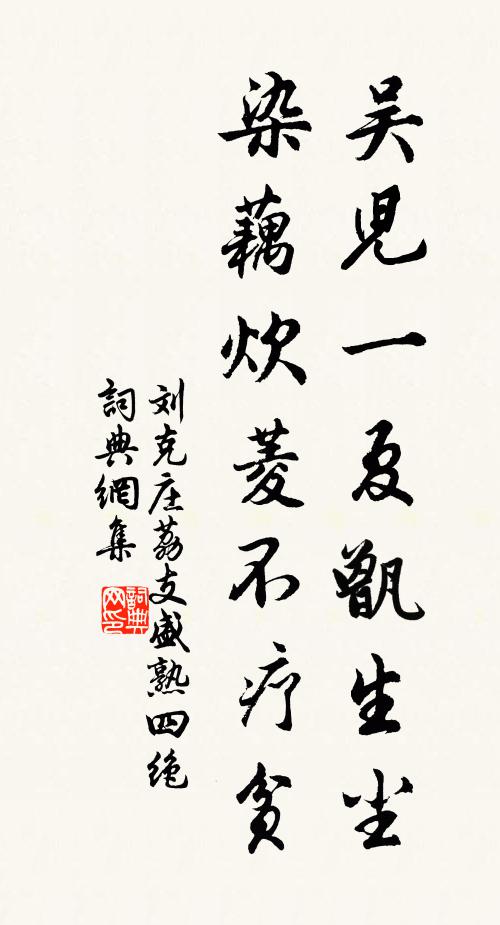 吴児一夏甑生尘
染藕炊菱不疗贫
刘克庄荔支盛熟四绝
詞典網集
詞典网印